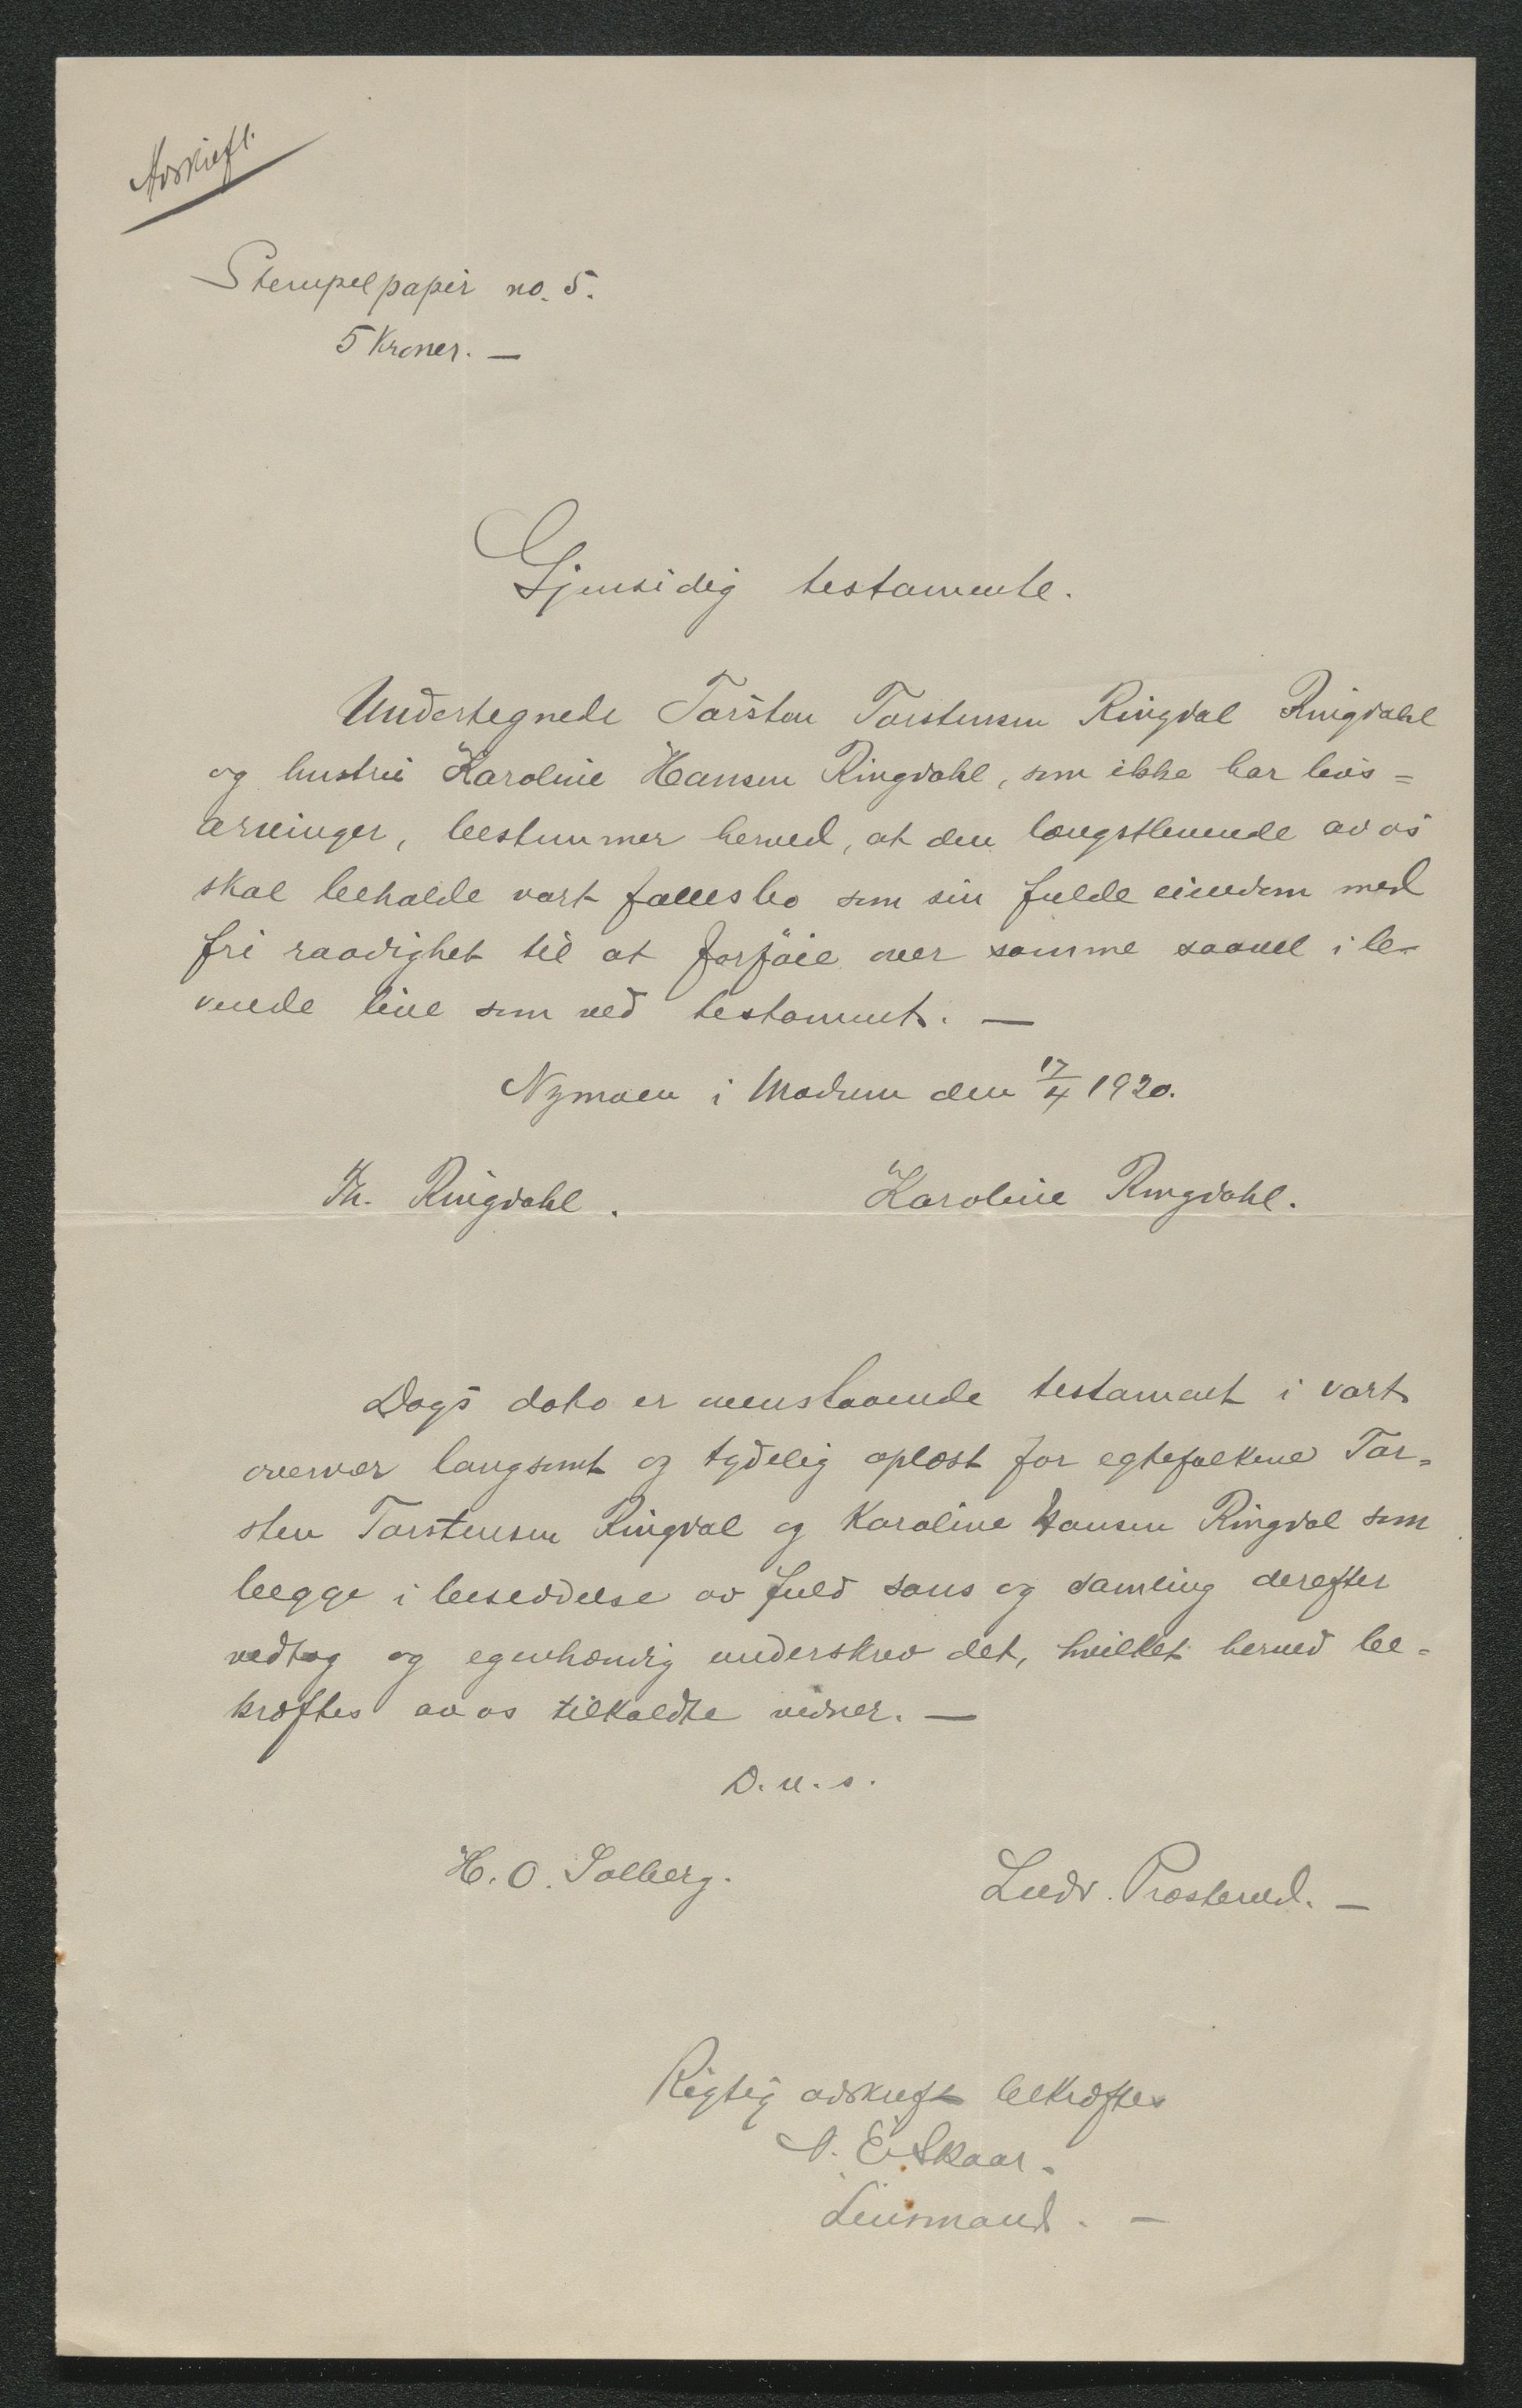 Avskrift.
Stempelpapir no. 5.
5 Kroner. —
Gjensidig testamente.
Undertegnede Torsten Torstensen Ringdal Ringdahl
og hustru Karoline Hansen Ringdahl, som ikke har livs=
arvinger, bestemmer herved, at den længstlevende av os
skal beholde vort fællesbo som sin fulde eiendom med
fri raadighet til at forföie over samme saavel i le-
vende live som ved testament. —
Nymoen i Modum den 17/4 1920.
Th. Ringdahl.
Karoline Ringdahl.
Dags dato er ovenstaaende testament i vort
overvær langsomt og tydelig oplæst for egtefolkene Tor=
sten Torstensen Ringdal og Karoline Hansen Ringdal som
begge i besiddelse av fuld sans og samling derefter
vedtog og egenhændig underskrev det, hvilket herved be=
kræftes av os tilkaldte vidner. —
D. u. s.
H. O. Solberg.
Ludv. Præsterud. —
Rigtig avskrift bekræftes
E. Skaar.
Lensmand. —